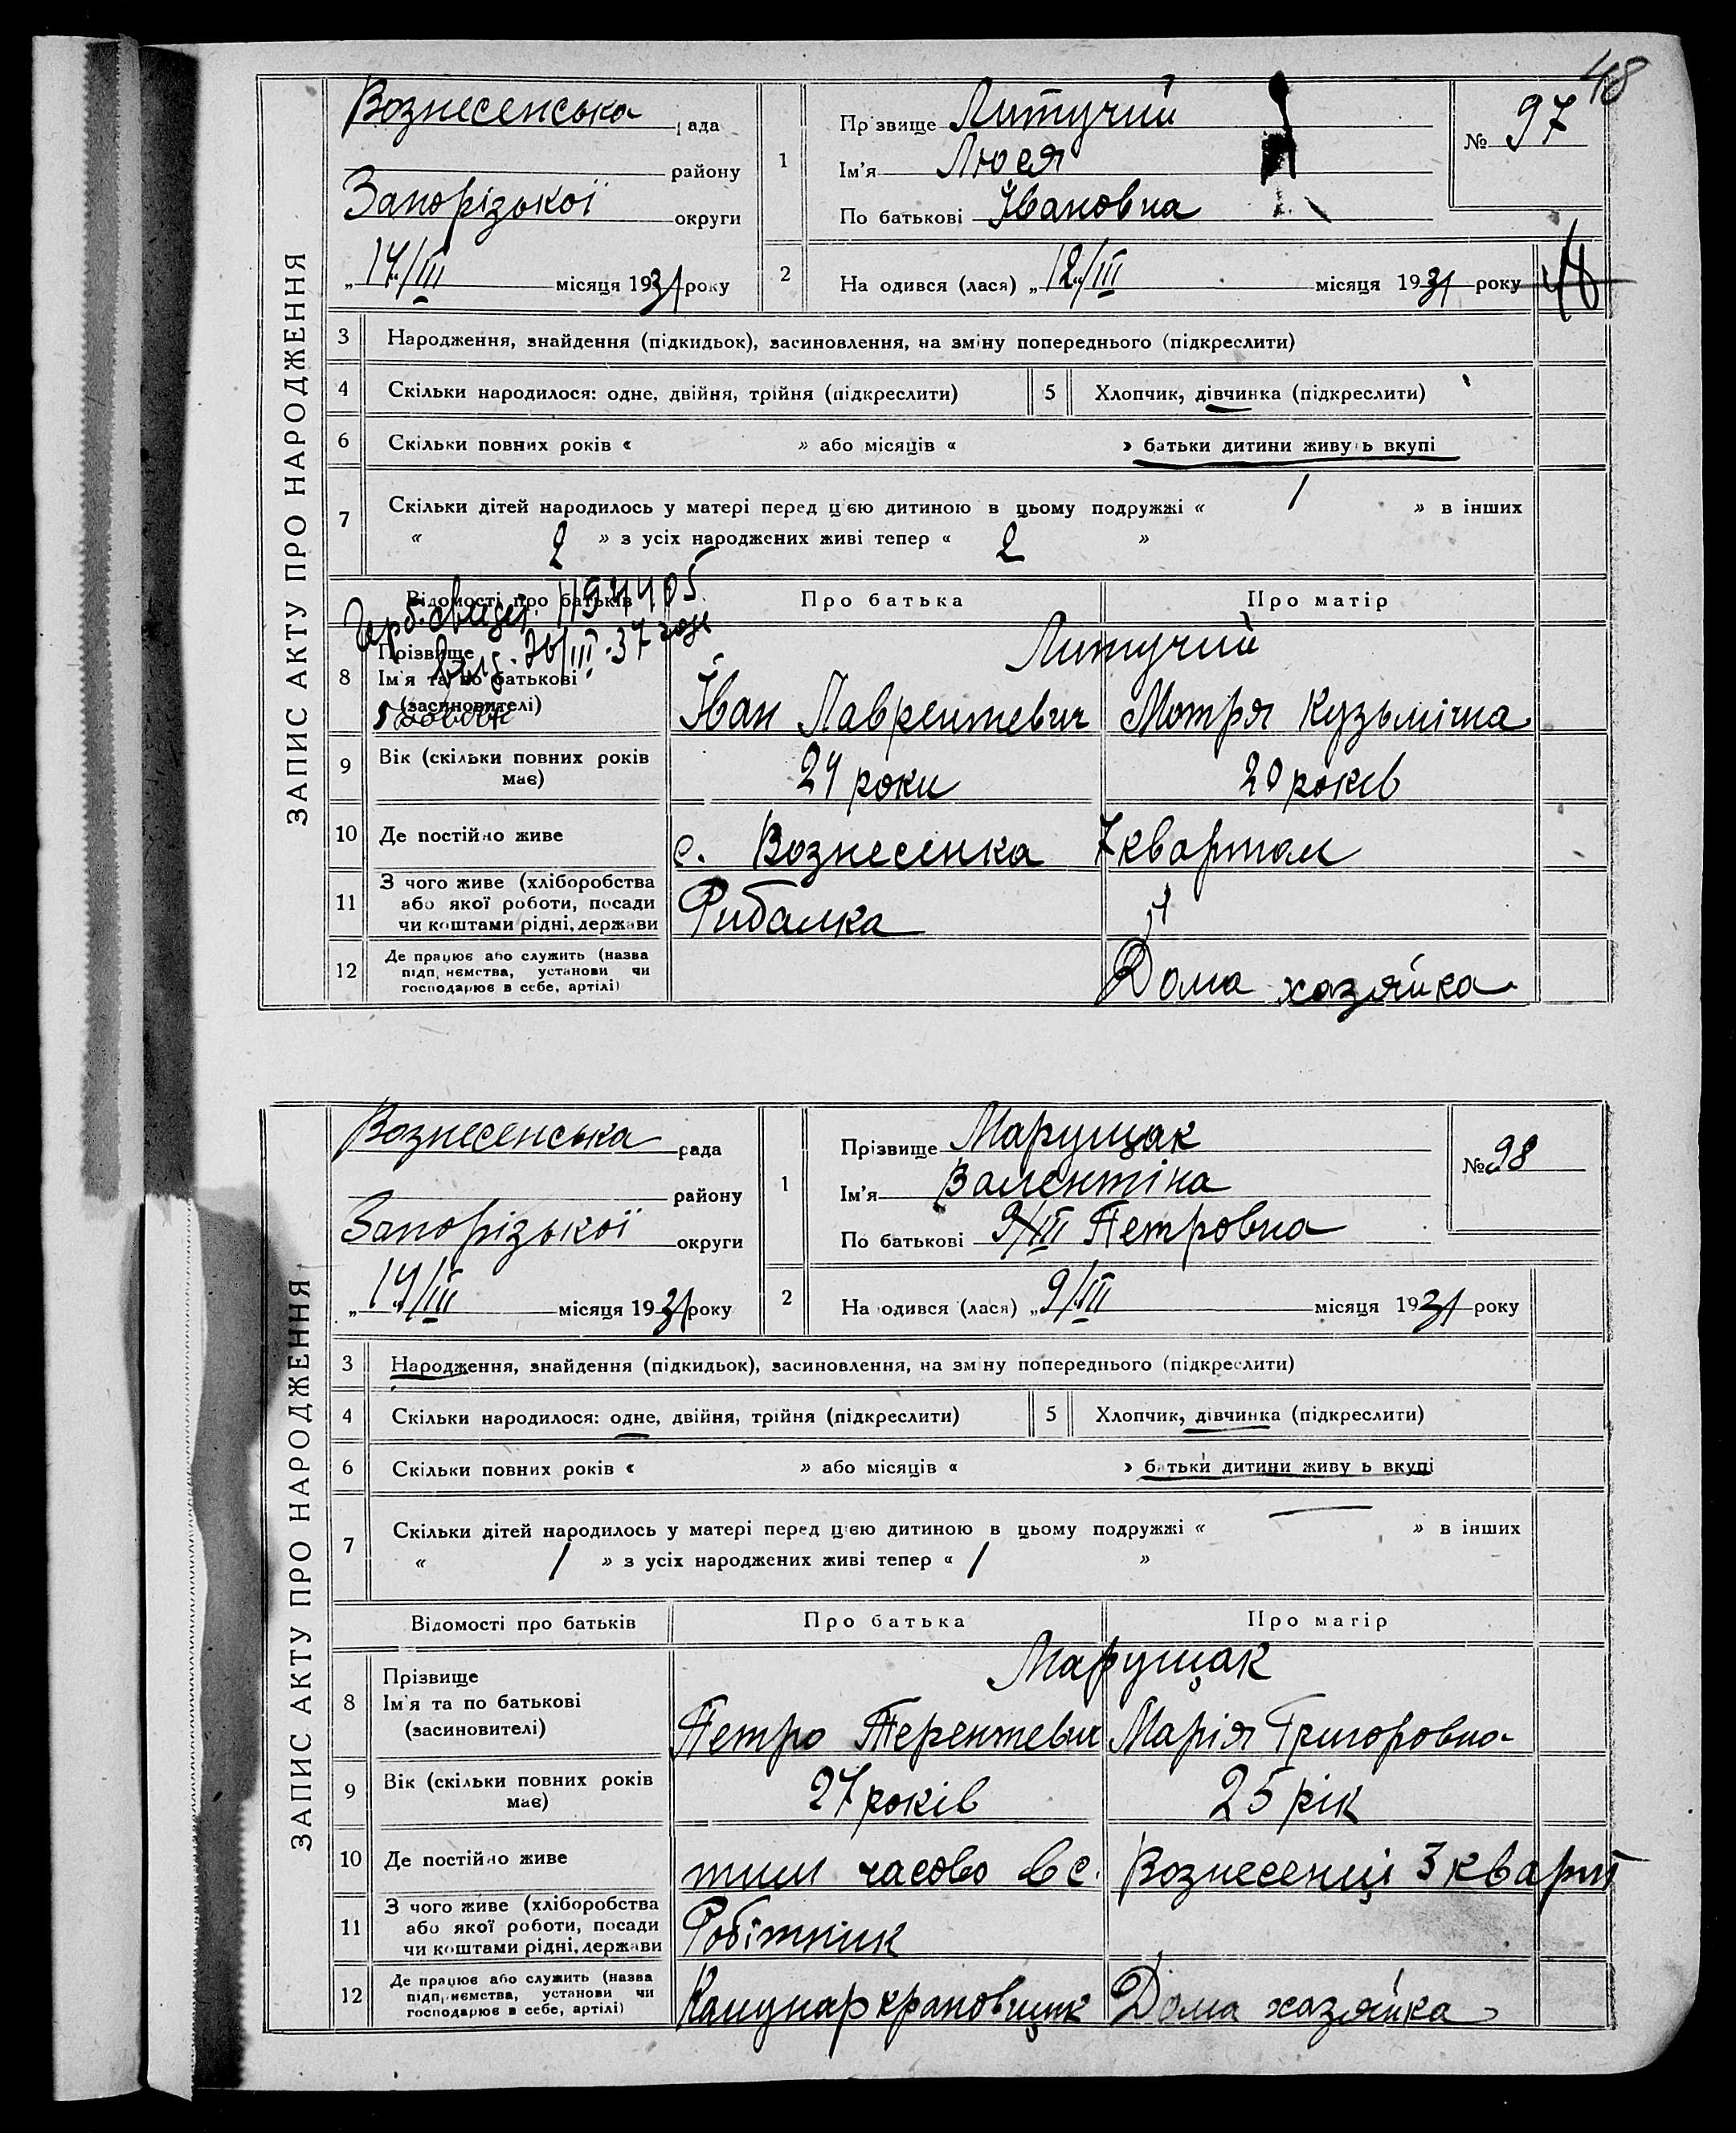 48
ЗАПИС АКТУ ПРО НАРОДЖЕННЯ
Вознесенська рада
району
Запорізької округи
„ 14/III місяця 1931 року
1
Прізвище Литучий
Ім'я Люся
По батькові Івановна
№ 97
2
На одився (лася) „ 12/III місяця 1931 року
3 Народження, знайдення (підкидьок), засиновлення, на зміну попереднього (підкреслити)
4 Скільки народилося: одне, двійня, трійня (підкреслити)
5 Хлопчик, дівчинка (підкреслити)
6 Скільки повних років « » або місяців « » батьки дитини живуть вкупі
7 Скільки дітей народилось у матері перед цією дитиною в цьому подружжі « 1 » в інших
« 2 » з усіх народжених живі тепер « 2 »
Відомості про батьків
Про батька
Про матір
III 37
8 Прізвище
Ім'я та по батькові
(засиновителі)
Литучий
Іван Лаврентевич
Мотря Кузьмінична
9 Вік (скільки повних років
має)
24 роки
20 років
10 Де постійно живе
с. Вознесенка 7 квартал
11 З чого живе (хліборобства
або якої роботи, посади
чи коштами рідні, держави
Рибалка
12 Де працює або служить (назва
підприємства, установи чи
господарює в себе, артілі)
Дома хазяйка
ЗАПИС АКТУ ПРО НАРОДЖЕННЯ
Вознесенська рада
району
Запорізької округи
„ 14/III місяця 1931 року
1
Прізвище Марущак
Ім'я Валентіна
По батькові 9/III Петровна
№ 98
2
На одився (лася) „ 9/III місяця 1931 року
3 Народження, знайдення (підкидьок), засиновлення, на зміну попереднього (підкреслити)
4 Скільки народилося: одне, двійня, трійня (підкреслити)
5 Хлопчик, дівчинка (підкреслити)
6 Скільки повних років « » або місяців « » батьки дитини живу ь вкупі
7 Скільки дітей народилось у матері перед цією дитиною в цьому подружжі « — » в інших
« 1 » з усіх народжених живі тепер « 1 »
Відомості про батьків
Про батька
Про матір
8 Прізвище
Ім'я та по батькові
(засиновителі)
Марущак
Петро Терентевич
Марія Григоровна
9 Вік (скільки повних років
має)
27 років
25 рік
10 Де постійно живе
тим часово в с. Вознесенці 3 кварт
11 З чого живе (хліборобства
або якої роботи, посади
чи коштами рідні, держави
Робітник
12 Де працює або служить (назва
підприємства, установи чи
господарює в себе, артілі)
крановщик
Дома хазяйка